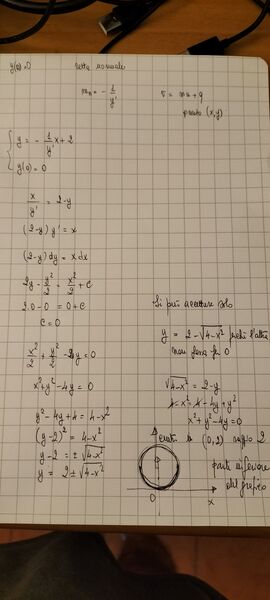 y(0)=0 retta normale
m_n = - 1/y'
r = mx+q
punto (x,y)
{ y = - 1/y' x + 2
y(0) = 0
x/y' = 2-y
(2-y) y' = x
(2-y) dy = x dx
2y - y²/2 = x²/2 + c
2·0 - 0 = 0 + c
c = 0
x²/2 + y²/2 - 2y = 0
x²+y²-4y = 0
y²-4y+4 = 4-x²
(y-2)² = 4-x²
y-2 = ±√4-x²
y = 2±√4-x²
Si può accettare solo
y = 2-√4-x² l'altra
non passa per 0
√4-x² = 2-y
4-x² = 4-4y+y²
x²+y²-4y=0
(0,2) raggio 2
parte inferiore
del grafico
0
x